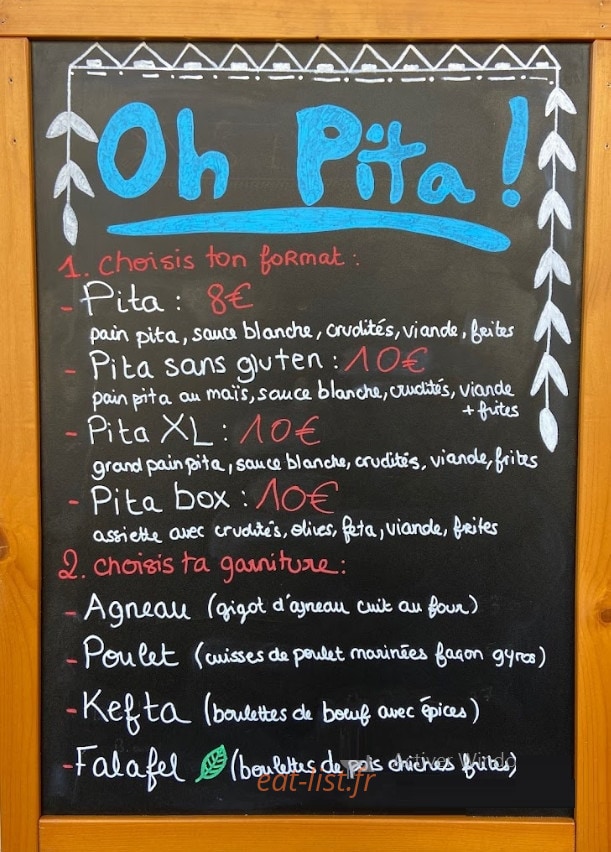 Oh Pita !
1. Choisis ton format :
- Pita : 8€
pain pita, sauce blanche, crudités, viande, frites
- Pita sans gluten : 10€
pain pita au maïs, sauce blanche, crudités, viande
+ frites
- Pita XL : 10€
grand pain pita, sauce blanche, crudités, viande, frites
- Pita box : 10€
assiette avec crudités, olives, feta, viande, frites
2. choisis ta garniture :
- Agneau (gigot d'agneau cuit au four)
- Poulet (cuisses de poulet marinées façon gyros)
- Kefta (boulettes de bœuf avec épices)
- Falafel (boulettes de pois chiches frites)
Activer Windo
eat-list.fr